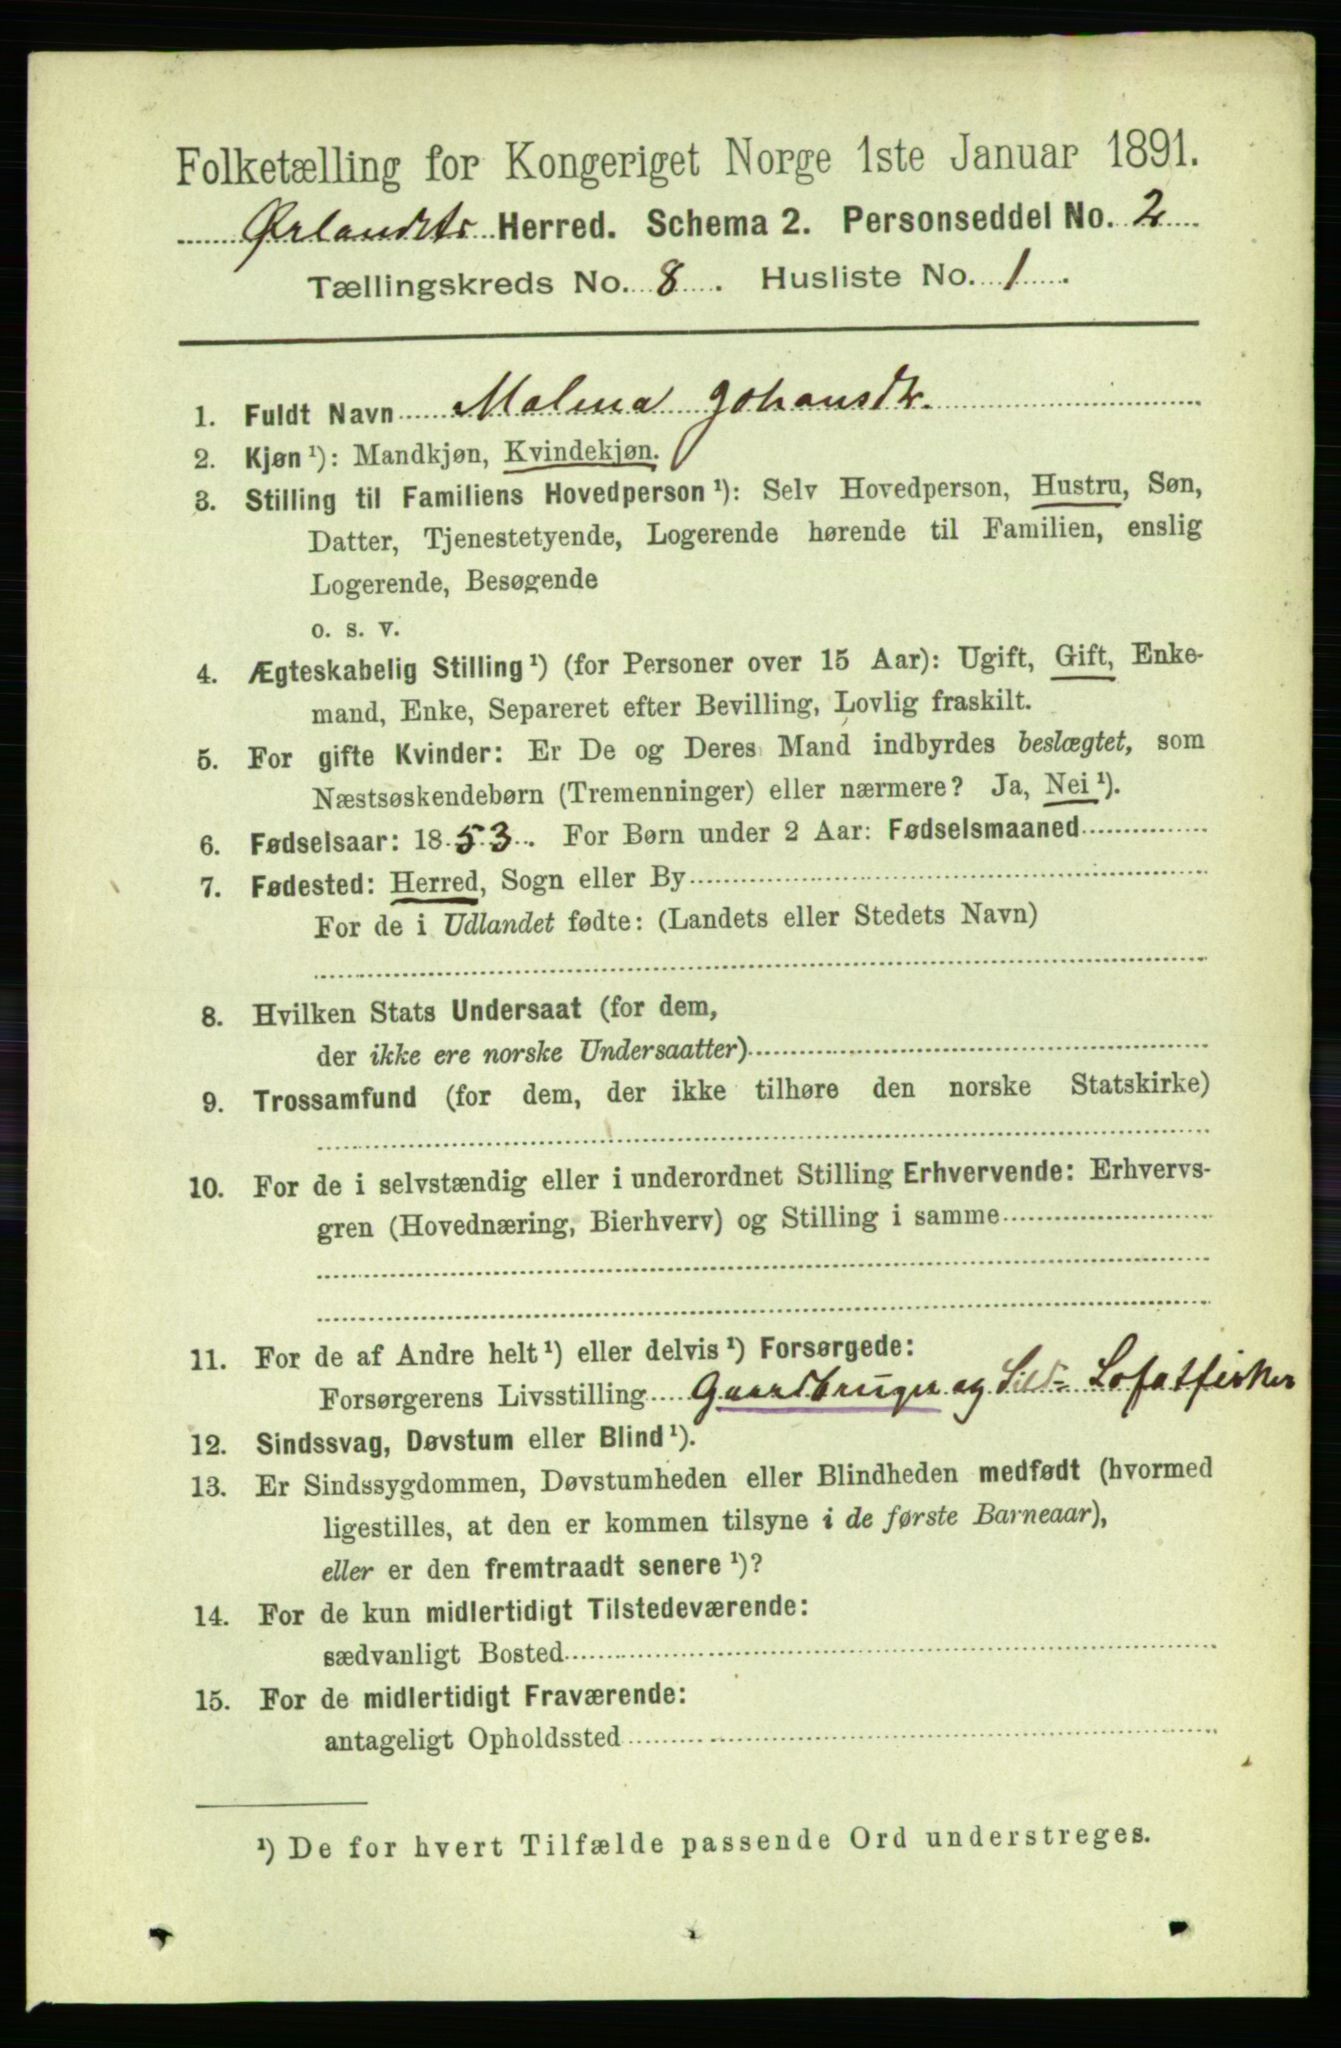 Folketælling for Kongeriget Norge 1ste Januar 1891.
Ørlandets Herred. Schema 2. Personseddel No. 2
Tællingskreds No. 8. Husliste No. 1.
1. Fuldt Navn Malena Johansdtr.
2. Kjøn ¹): Mandkjøn, Kvindekjøn.
3. Stilling til Familiens Hovedperson ¹): Selv Hovedperson, Hustru, Søn,
Datter, Tjenestetyende, Logerende hørende til Familien, enslig
Logerende, Besøgende
o. s. v.
4. Ægteskabelig Stilling ¹) (for Personer over 15 Aar): Ugift, Gift, Enke-
mand, Enke, Separeret efter Bevilling, Lovlig fraskilt.
5. For gifte Kvinder: Er De og Deres Mand indbyrdes beslægtet, som
Næstsøskendebørn (Tremenninger) eller nærmere? Ja, Nei ¹).
6. Fødselsaar: 1853. For Børn under 2 Aar: Fødselsmaaned
7. Fødested: Herred, Sogn eller By
For de i Udlandet fødte: (Landets eller Stedets Navn)
8. Hvilken Stats Undersaat (for dem,
der ikke ere norske Undersaatter)
9. Trossamfund (for dem, der ikke tilhøre den norske Statskirke)
10. For de i selvstændig eller i underordnet Stilling Erhvervende: Erhvervs-
gren (Hovednæring, Bierhverv) og Stilling i samme
11. For de af Andre helt ¹) eller delvis ¹) Forsørgede:
Forsørgerens Livsstilling Gaardbruger og Sild- Lofatfisker
12. Sindssvag, Døvstum eller Blind ¹).
13. Er Sindssygdommen, Døvstumheden eller Blindheden medfødt (hvormed
ligestilles, at den er kommen tilsyne i de første Barneaar),
eller er den fremtraadt senere ¹)?
14. For de kun midlertidigt Tilstedeværende:
sædvanligt Bosted
15. For de midlertidigt Fraværende:
antageligt Opholdssted
¹) De for hvert Tilfælde passende Ord understreges.